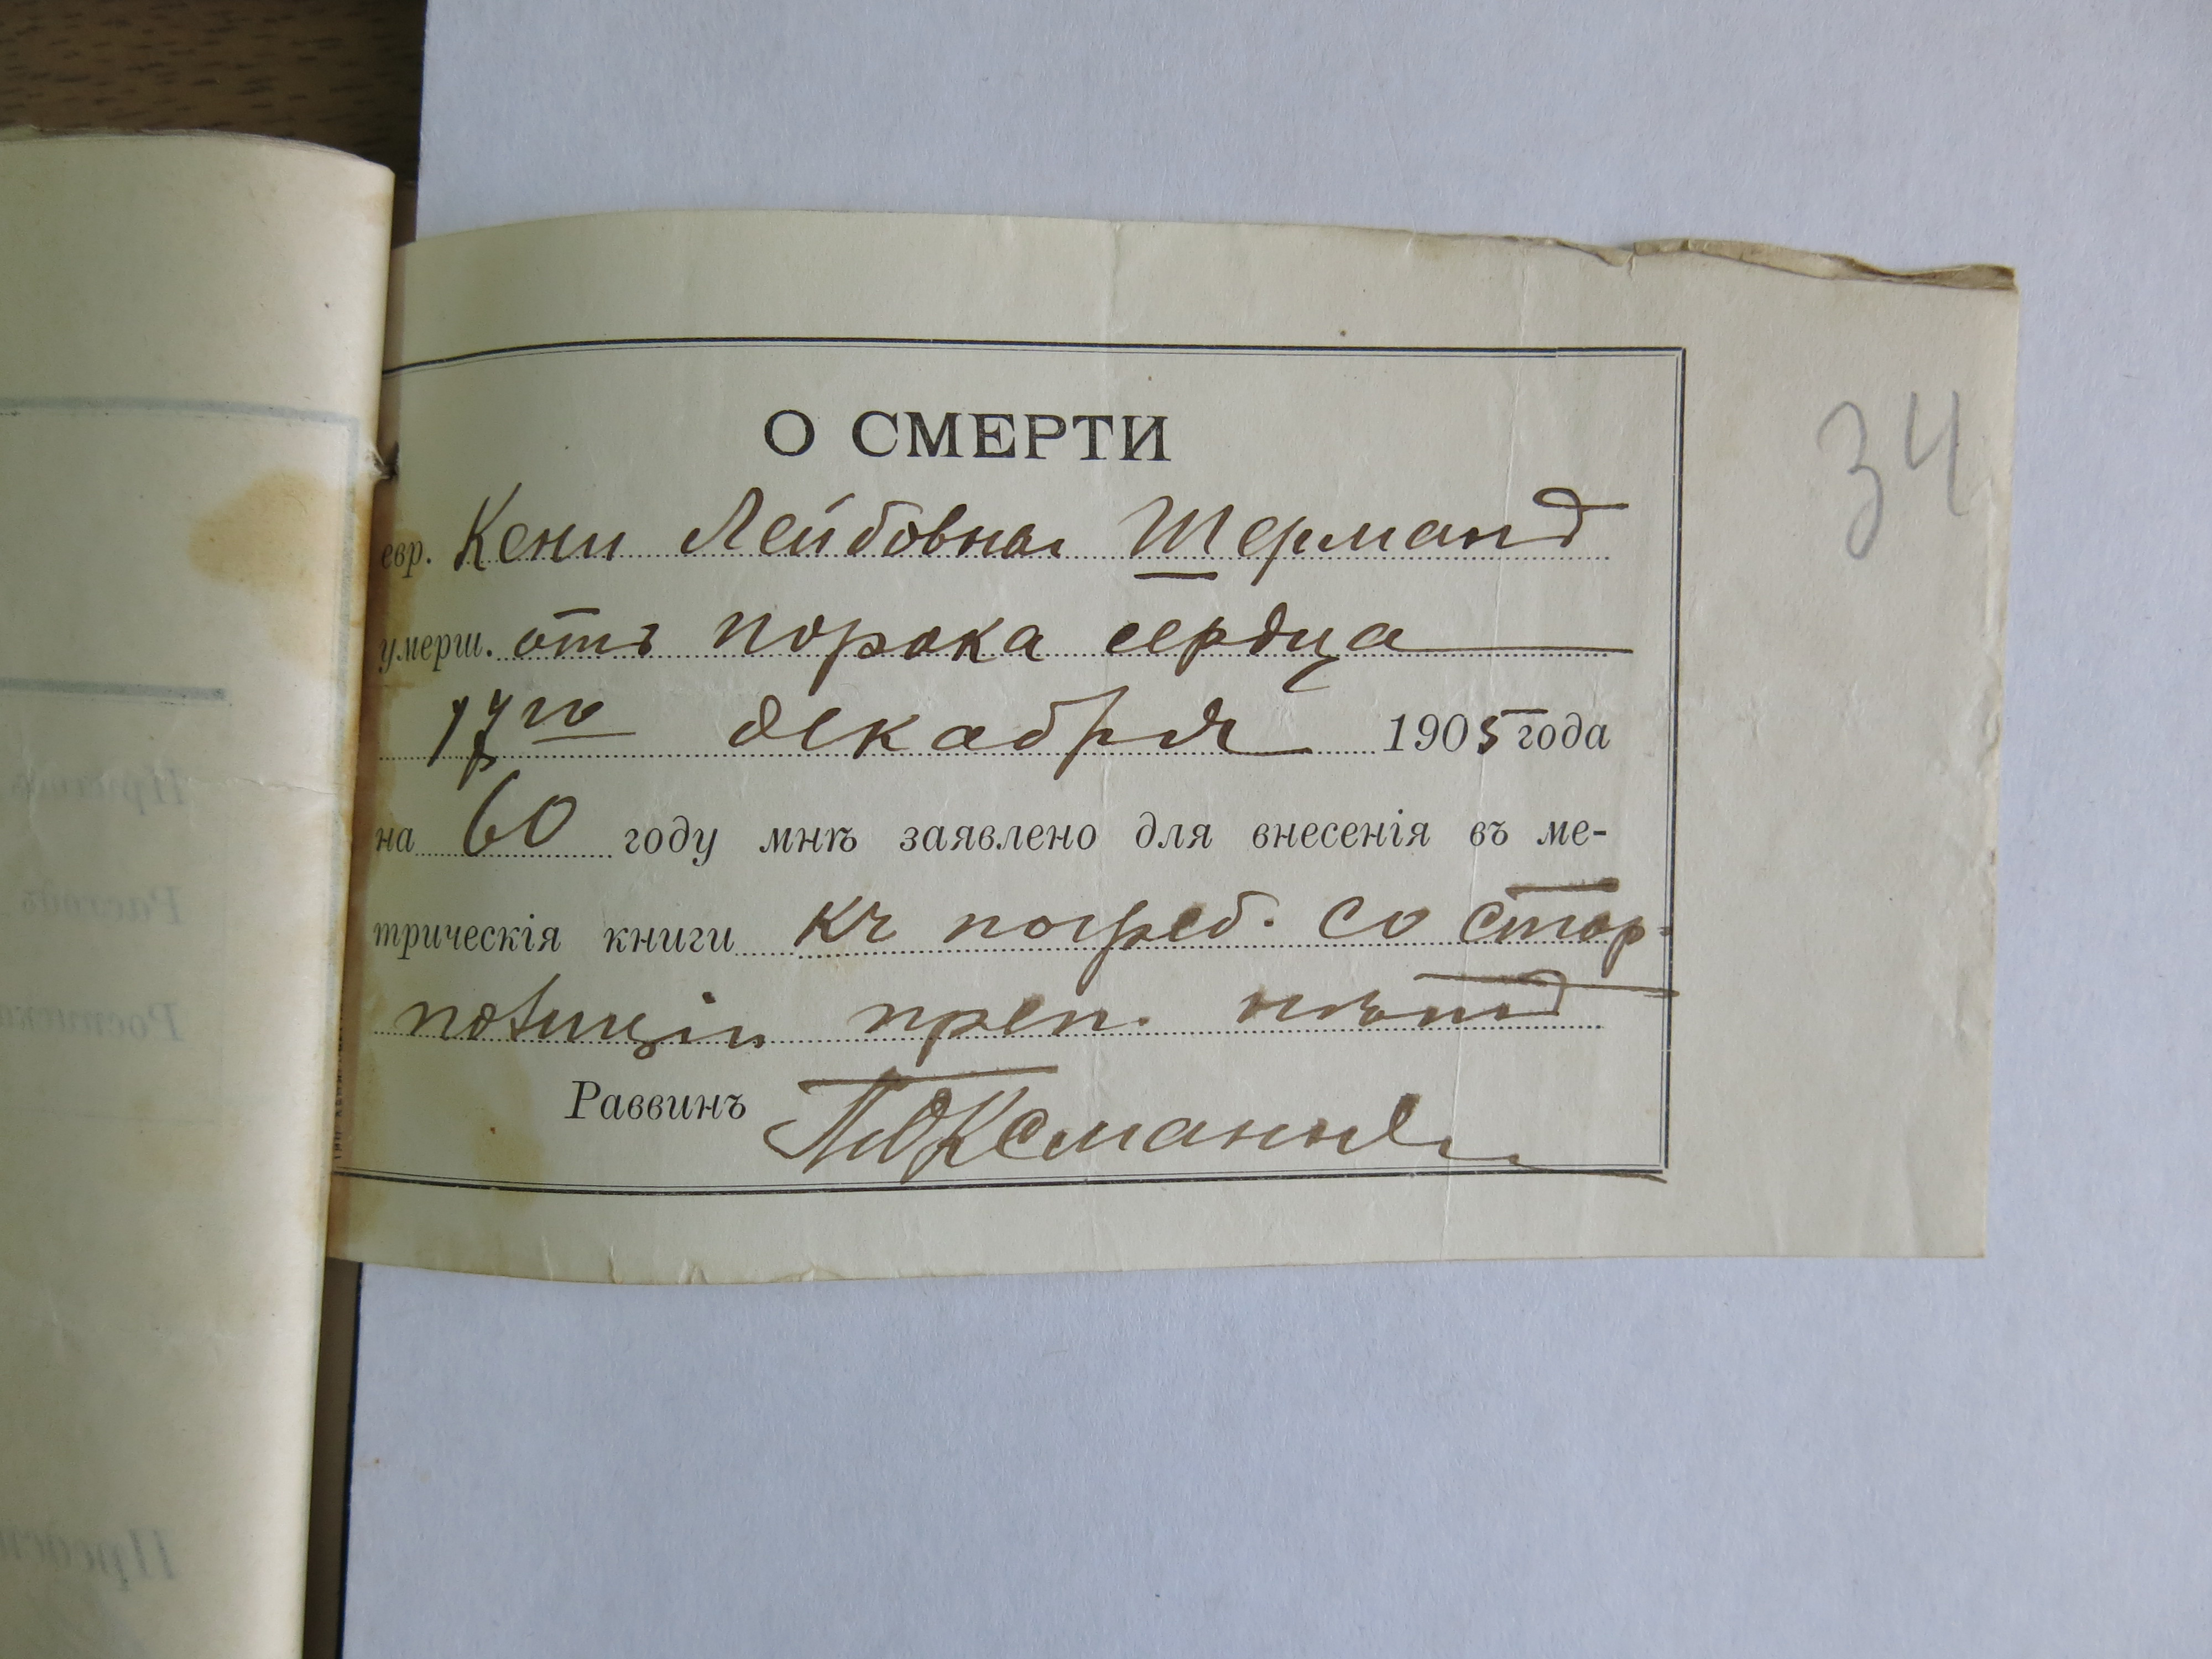 34
О СМЕРТИ
евр. Кени Лейбовна Шерманъ
умерш. отъ порока сердца
17го декабря 1905 года
на 60 году мнѣ заявлено для внесенія въ ме-
трическія книги къ погреб. со стор.
полиціи преп. нѣтъ
Раввинъ